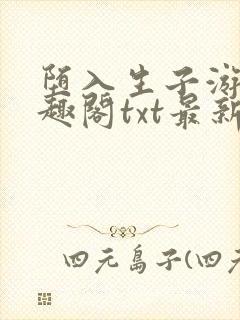 堕入生子游
趣阁txt最新
四元岛子(四元